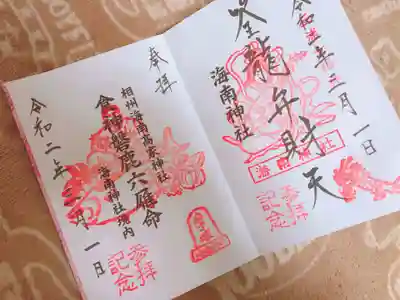 令和二年三月一日
筌龍弁財天
海南神社
海南神社
参拝
記念
奉拝
相州海南高家神社
食神磐鹿六雁命
海南神社境内
令和二年三月一日
参拝
記念